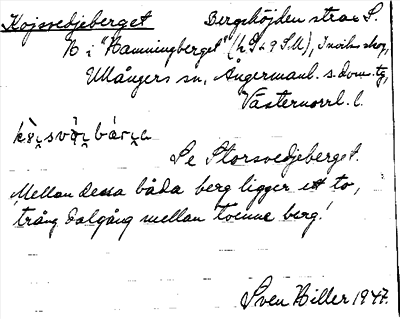 Kojsvedjeberget Bergshöjden strax S.
N i "Hamningberget" (h S h 9 SU), Inviks skog,
Ullångers sn, Ångermanl. s. doms. tg,
Västernorrl. l.
Se Storsvedjeberget.
Mellan dessa båda berg ligger ett to,
trång dalgång mellan tvenne berg!
Sven Biller 1947.